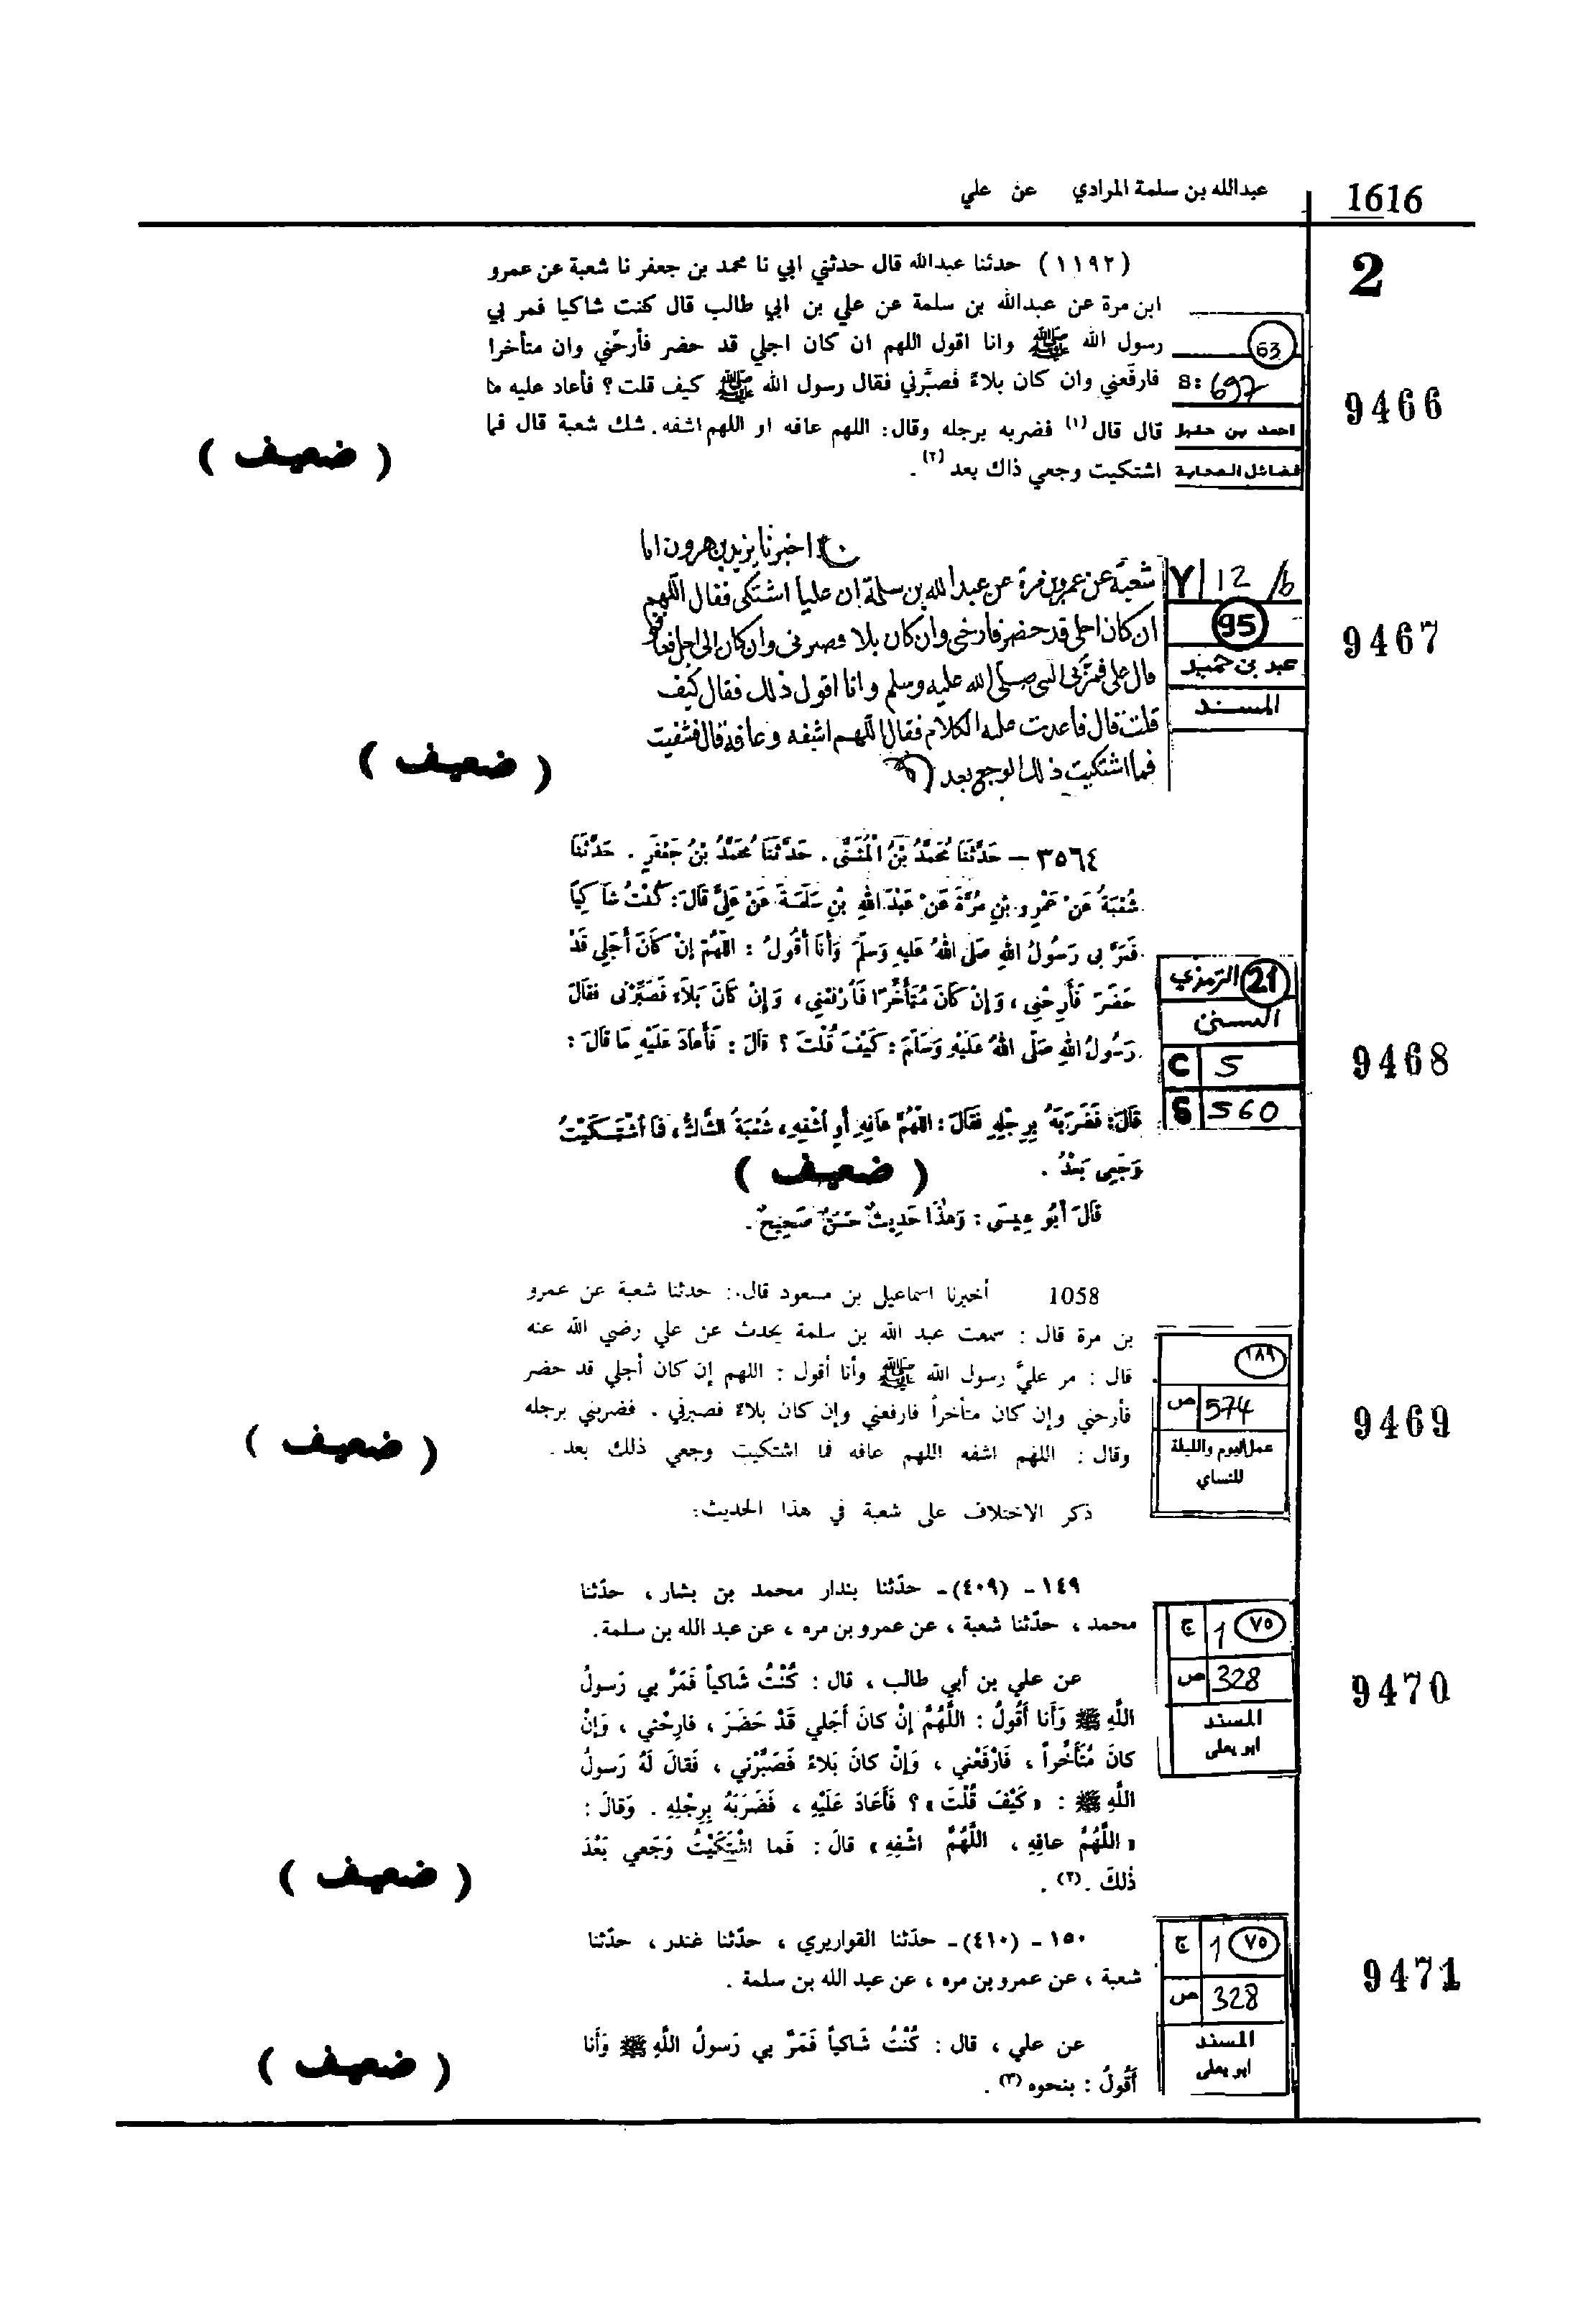 1616
عبدالله بن سلمة المرادي عن علي
2
(١١٩٢) حدثنا عبدالله قال حدثني ابي نا محمد بن جعفر نا شعبة عن عمرو
ابن مرة عن عبدالله بن سلمة عن علي بن ابي طالب قال كنت شاكيا فمر بي
رسول الله ﷺ وانا اقول اللهم ان كان اجلي قد حضر فأرحني وان متأخرا
فارفعني وان كان بلاءً فصبّرني فقال رسول الله ﷺ كيف قلت؟ فأعاد عليه ما
قال قال (١) فضربه برجله وقال: اللهم عافه او اللهم اشفه. شك شعبة قال فما
اشتكيت وجعي ذاك بعد (٢).
63
S: 697
احمد بن حنبل
فضائل الصحابة
9466
( ضعيف )
اخبرنا يزيد بن هرون انا
شعبة عن عمرو بن مرة عن عبد الله بن سلمة ان عليا اشتكى فقال اللهم
ان كان اجلي قد حضر فارحني وان كان بلا فصبرني وان كان الى اجل
قال علي فمر بي النبي صلى الله عليه وسلم وانا اقول ذلك فقال كيف
قلت قال فاعدت عليه الكلام فقال اللهم اشفه وعافه قال فشفيت
فما اشتكيت ذلك الوجع بعد
Y 12 /b
95
عبد بن حميد
المسند
9467
( ضعيف )
٣٥٦٤ – حَدَّثَنَا مُحَمَّدُ بْنُ الْمُثَنَّى. حَدَّثَنَا مُحَمَّدُ بْنُ جَعْفَرٍ. حَدَّثَنَا
شُعْبَةُ عَنْ عَمْرِو بْنِ مُرَّةَ عَنْ عَبْدِ اللهِ بْنِ سَلَمَةَ عَنْ عَلِيٍّ قَالَ: كُنْتُ شَاكِيًا
فَمَرَّ بِي رَسُولُ اللهِ صَلَّى اللهُ عَلَيْهِ وَسَلَّمَ وَأَنَا أَقُولُ: اللَّهُمَّ إِنْ كَانَ أَجَلِي قَدْ
حَضَرَ فَأَرِحْنِي، وَإِنْ كَانَ مُتَأَخِّرًا فَارْفَعْنِي، وَإِنْ كَانَ بَلَاءً فَصَبِّرْنِي فَقَالَ
رَسُولُ اللهِ صَلَّى اللهُ عَلَيْهِ وَسَلَّمَ: كَيْفَ قُلْتَ؟ قَالَ: فَأَعَادَ عَلَيْهِ مَا قَالَ:
قَالَ: فَضَرَبَهُ بِرِجْلِهِ فَقَالَ: اللَّهُمَّ عَافِهِ أَوِ اشْفِهِ، شُعْبَةُ الشَّاكُّ، فَمَا اشْتَكَيْتُ
وَجَعِي بَعْدُ.
( ضعيف )
قَالَ أَبُو عِيسَى: وَهٰذَا حَدِيثٌ حَسَنٌ صَحِيحٌ.
21 الترمذي
السنن
C 5
S 560
9468
1058 أخبرنا اسماعيل بن مسعود قال: حدثنا شعبة عن عمرو
بن مرة قال: سمعت عبد الله بن سلمة يحدث عن علي رضي الله عنه
قال: مر عليَّ رسول الله ﷺ وأنا أقول: اللهم إن كان أجلي قد حضر
فأرحني وإن كان متأخراً فارفعني وإن كان بلاءً فصبرني. فضربني برجله
وقال: اللهم اشفه اللهم عافه فما اشتكيت وجعي ذلك بعد.
ذكر الاختلاف على شعبة في هذا الحديث:
١٨٩
ص 574
عمل اليوم والليلة
للنساي
9469
( ضعيف )
١٤٩ - (٤٠٩)- حدّثنا بندار محمد بن بشار، حدّثنا
محمد، حدّثنا شعبة، عن عمرو بن مره، عن عبد الله بن سلمة.
عن علي بن أبي طالب، قال: كُنْتُ شَاكياً فَمَرَّ بي رَسولُ
اللَّهِ ﷺ وَأَنا أَقُولُ: اللَّهُمَّ إنْ كانَ أَجَلي قَدْ حَضَرَ، فارِحْني، وَإنْ
كانَ مُتَأَخِّراً، فَارْفَعْني، وَإنْ كانَ بَلاءً فَصَبِّرْني، فَقالَ لَهُ رَسولُ
اللَّهِ ﷺ: «كَيْفَ قُلْتَ»؟ فَأَعَادَ عَلَيْهِ، فَضَرَبَهُ بِرِجْلِهِ. وَقالَ:
«اللَّهُمَّ عافِهِ، اللَّهُمَّ اشْفِهِ» قالَ: فَما اشْتَكَيْتُ وَجَعي بَعْدَ
ذٰلكَ.(٢).
ج 1 ٧٥
ص 328
المسند
ابو يعلى
9470
( ضعيف )
١٥٠ - (٤١٠)- حدّثنا القواريري، حدّثنا غندر، حدّثنا
شعبة، عن عمرو بن مره، عن عبد الله بن سلمة.
عن علي، قال: كُنْتُ شَاكياً فَمَرَّ بي رَسولُ اللَّهِ ﷺ وَأَنا
أَقُولُ: بنحوه (٣).
ج 1 ٧٥
ص 328
المسند
ابو يعلى
9471
( ضعيف )